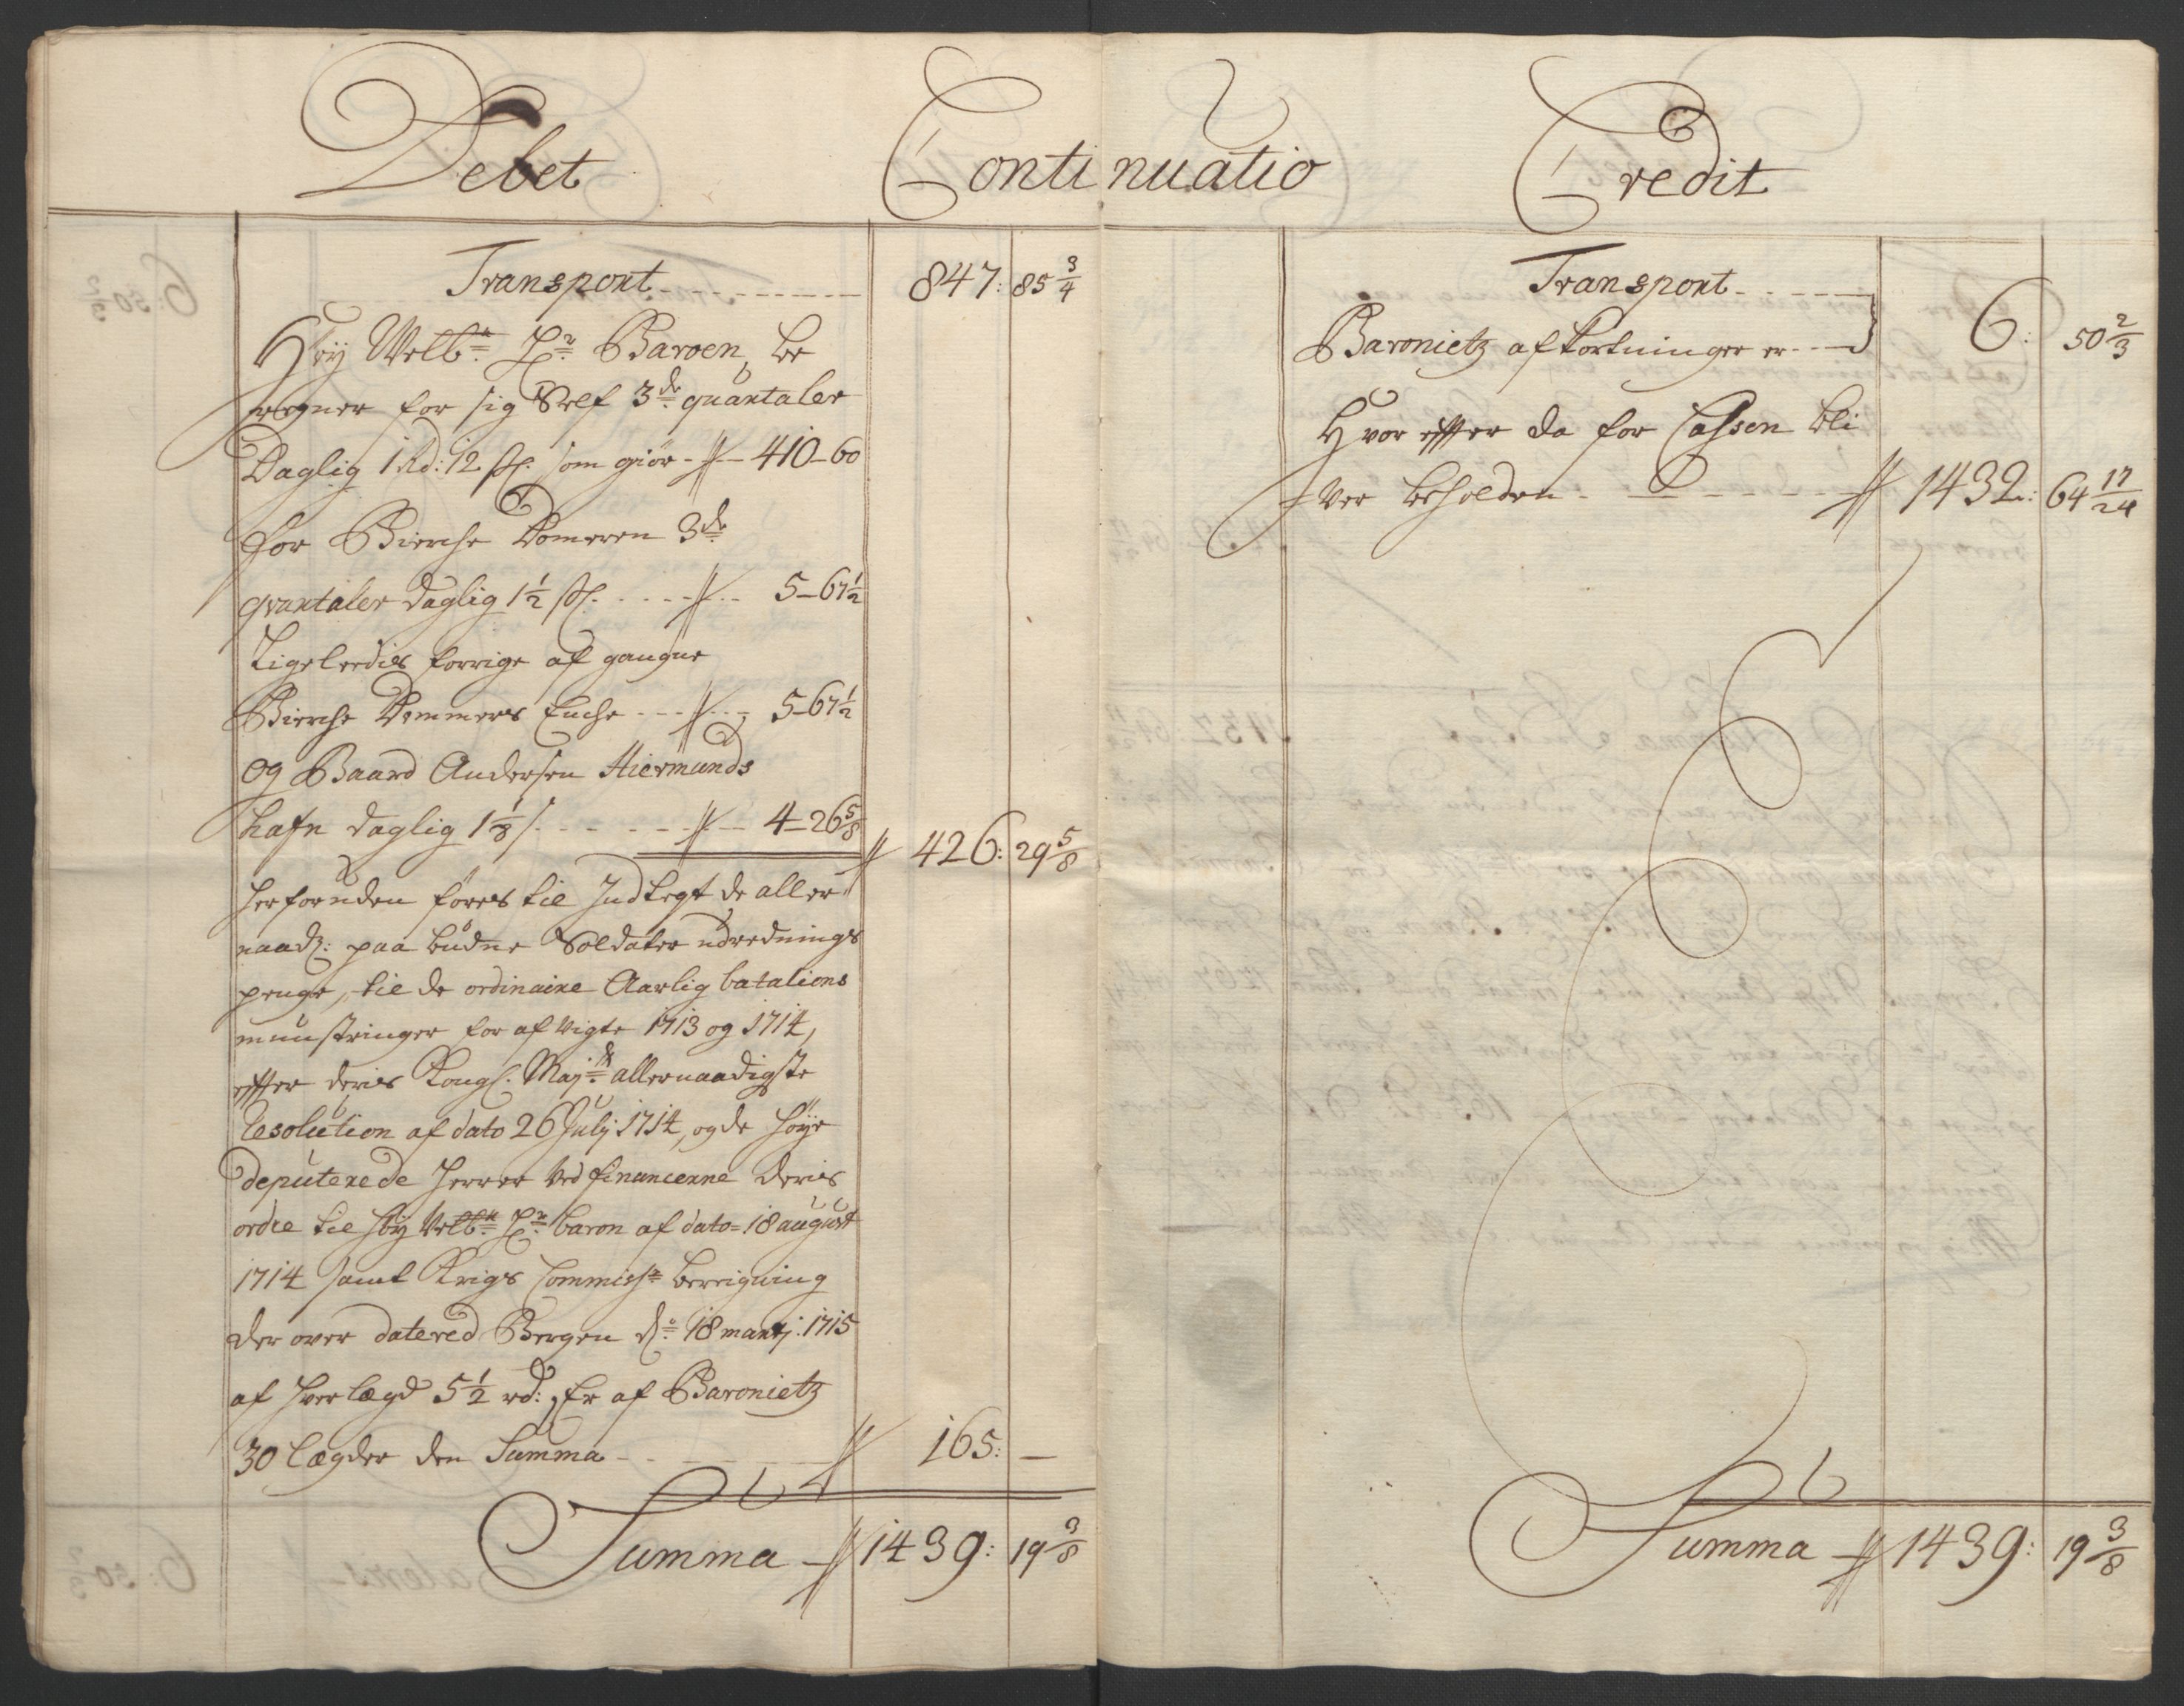 Debet Continuatio Credit
Transport 847: 85 3/4
Høy Welb:n Hr: Baroen, be
regner for sig Self 3de quartaler
Daglig 1 Rd: 12 s. som giør - 410-60
for Bierche Domeren 3de
qvartaler daglig 1 1/2 s. 5-67 1/2
Ligeleedis forrige af gangne
Bierche Dommers Enche 5-67 1/2
og Baard Andersen Hiermunds
hafn daglig 1 1/8 s. 4-26 5/8
426: 29 5/8
Herforuden føres til Indtegt de aller
naadz: paa budne Soldater udrednings
penge, til de ordinaire Aarlig batalions
munstringer for afvigte 1713 og 1714,
effter deris Kongl. Maj:ts allernaadigste
Resolution af dato 26 Julj 1714, og de høye
deputerede Herrer ved financerne deris
ordre til Høy Welb:n Hr: baron af dato 18 august
1714 samt Krigs Commiss:r bereigning
der over datered Bergen d: 18 martj: 1715
af Hver lægd 5 1/2 rd: Er af Baronietz
30 Lægder den Summa 165: —
Summa 1439: 19 3/8
Transport
Baronietz afkortninger er 6: 50 2/3
Hvor effter da for Cassen bli
ver beholden 1432: 64 17/24
Summa 1439: 19 3/8